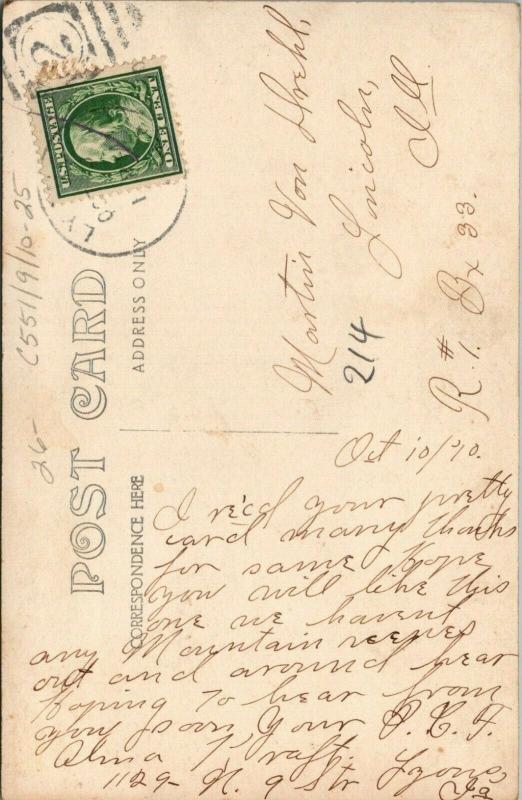 POST CARD
CORRESPONDENCE HERE
ADDRESS ONLY
26- C551/9/10-25
ONE CENT
U.S. POSTAGE
2
Martin Von Drehl,
Lincoln,
Ill.
R#1. Bx 33.
214
Oct 10/10.
I rec'd your pretty
card many thanks
for same hope
you will like this
one we havent
any Mountain scenes
out and around hear
hoping to hear from
you soon, Your P.C.F.
Alma Kraft.
1129- N. 9 Str Lyons
Ia